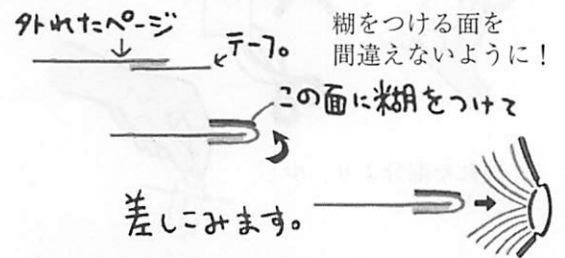 外れたページ
テープ。
糊をつける面を
間違えないように！
この面に糊をつけて
差しこみます。